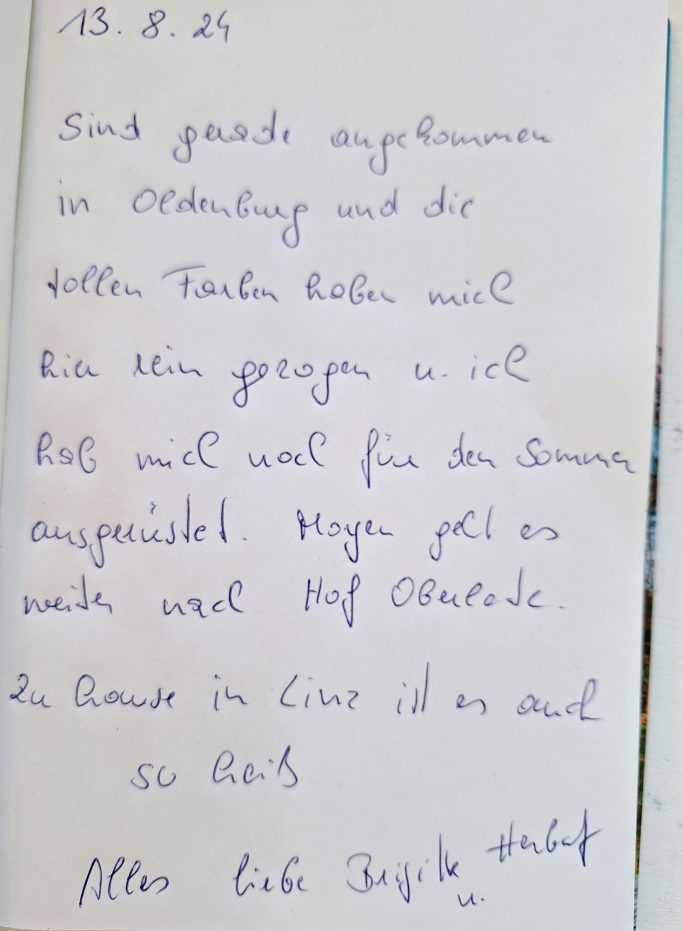 13. 8. 24
Sind gerade angekommen
in Oldenburg und die
tollen Farben haben mich
hier rein gezogen u. ich
hab mich noch für den Sommer
ausgerüstet. Morgen geht es
weiter nach Hof
Zu hause in Linz ist es auch
so heiß
Alles liebe Brigitte u. Herbert